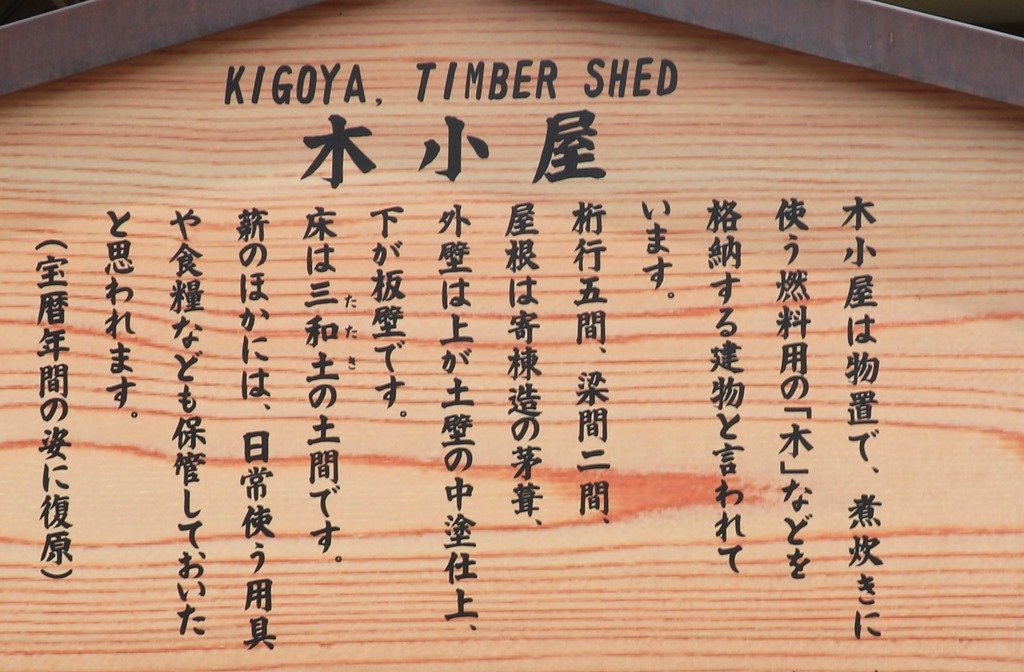 KIGOYA, TIMBER SHED
木小屋
木小屋は物置で、煮炊きに
使う燃料用の「木」などを
格納する建物と言われて
います。
桁行五間、梁間二間、
屋根は寄棟造の茅葺、
外壁は上が土壁の中塗仕上、
下が板壁です。
床は三和土の土間です。
たたき
薪のほかには、日常使う用具
や食糧なども保管しておいた
と思われます。
(宝暦年間の姿に復原)